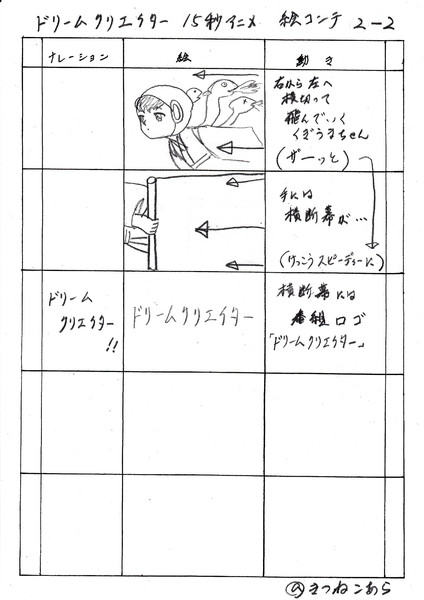 ドリームクリエイター 15秒アニメ 絵コンテ 2-2
ナレーション 絵 動き
右から左へ
横切って
飛んでいく
くぎうるちゃん
(ザーっと)
手には
横断幕が…
(けっこうスピーディーに)
ドリーム
クリエイター
!!
ドリームクリエイター
横断幕には
番組ロゴ
「ドリームクリエイター」
きつねこあら